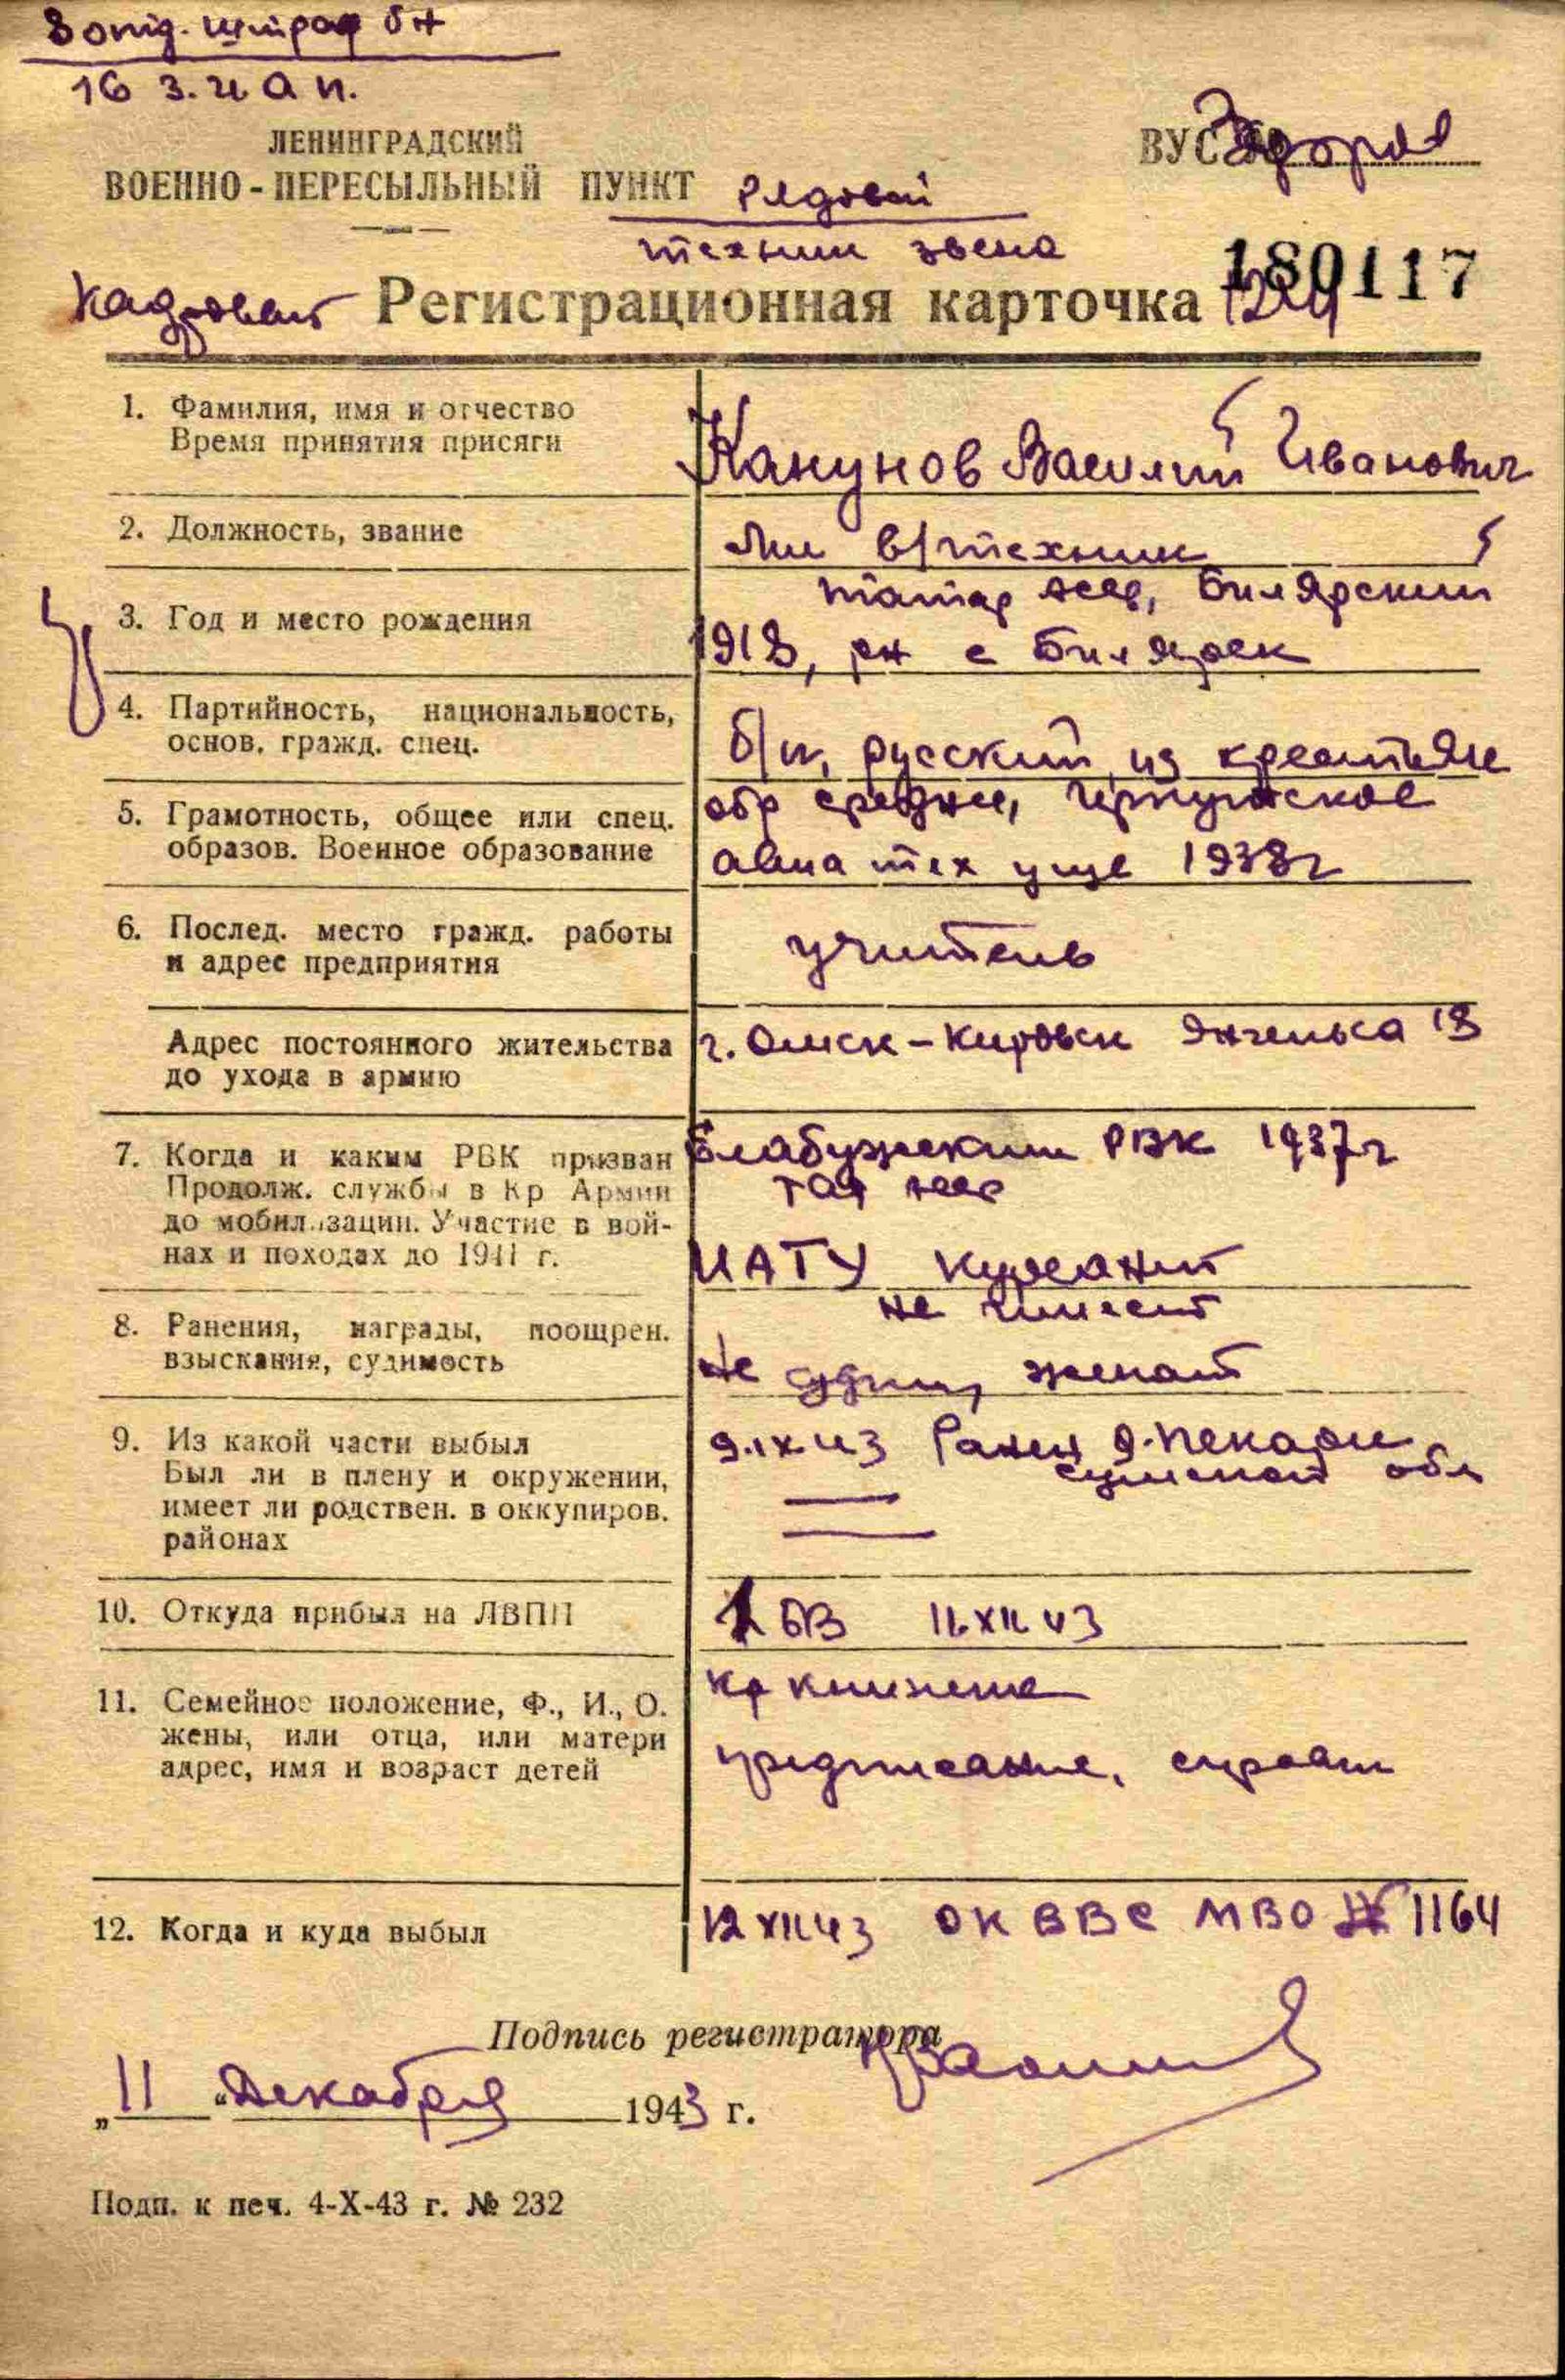 8 отд. штраф бн
16 з. и а п.
ЛЕНИНГРАДСКИЙ
ВОЕННО-ПЕРЕСЫЛЬНЫЙ ПУНКТ
ВУС
Здоров
Рядовой
техник звена
180117
Кадровый
Регистрационная карточка
1. Фамилия, имя и отчество
Время принятия присяги
Канунов Василий Иванович
2. Должность, звание
Мл в/техник
3. Год и место рождения
Татар АССР, Билярский
1918, рн с Билярск
4. Партийность, национальность,
основ. гражд. спец.
б/п, русский, из крестьян
5. Грамотность, общее или спец.
образов. Военное образование
обр средн, Иркутское
авиа тех уще 1938г
6. Послед. место гражд. работы
и адрес предприятия
учитель
Адрес постоянного жительства
до ухода в армию
г. Омск-Кировск Энгельса 18
7. Когда и каким РВК призван
Продолж. службы в Кр Армии
до мобилизации. Участие в вой-
нах и походах до 1941 г.
Елабужским РВК 1937г
Тат АССР
ИАТУ курсант
8. Ранения, награды, поощрен.
взыскания, судимость
не имеет
не судим, женат
9. Из какой части выбыл
Был ли в плену и окружении,
имеет ли родствен. в оккупиров.
районах
9.IX 43 Ранен д. Пекари
Сумской обл
10. Откуда прибыл на ЛВПП
БВ 11.XII 43
11. Семейное положение, Ф., И., О.
жены, или отца, или матери
адрес, имя и возраст детей
кр книжка
предписание,
12. Когда и куда выбыл
12 XII 43 ОК ВВС МВО № 1164
Подпись регистратора
„11" Декабря 1943 г.
Подп. к печ. 4-X-43 г. № 232